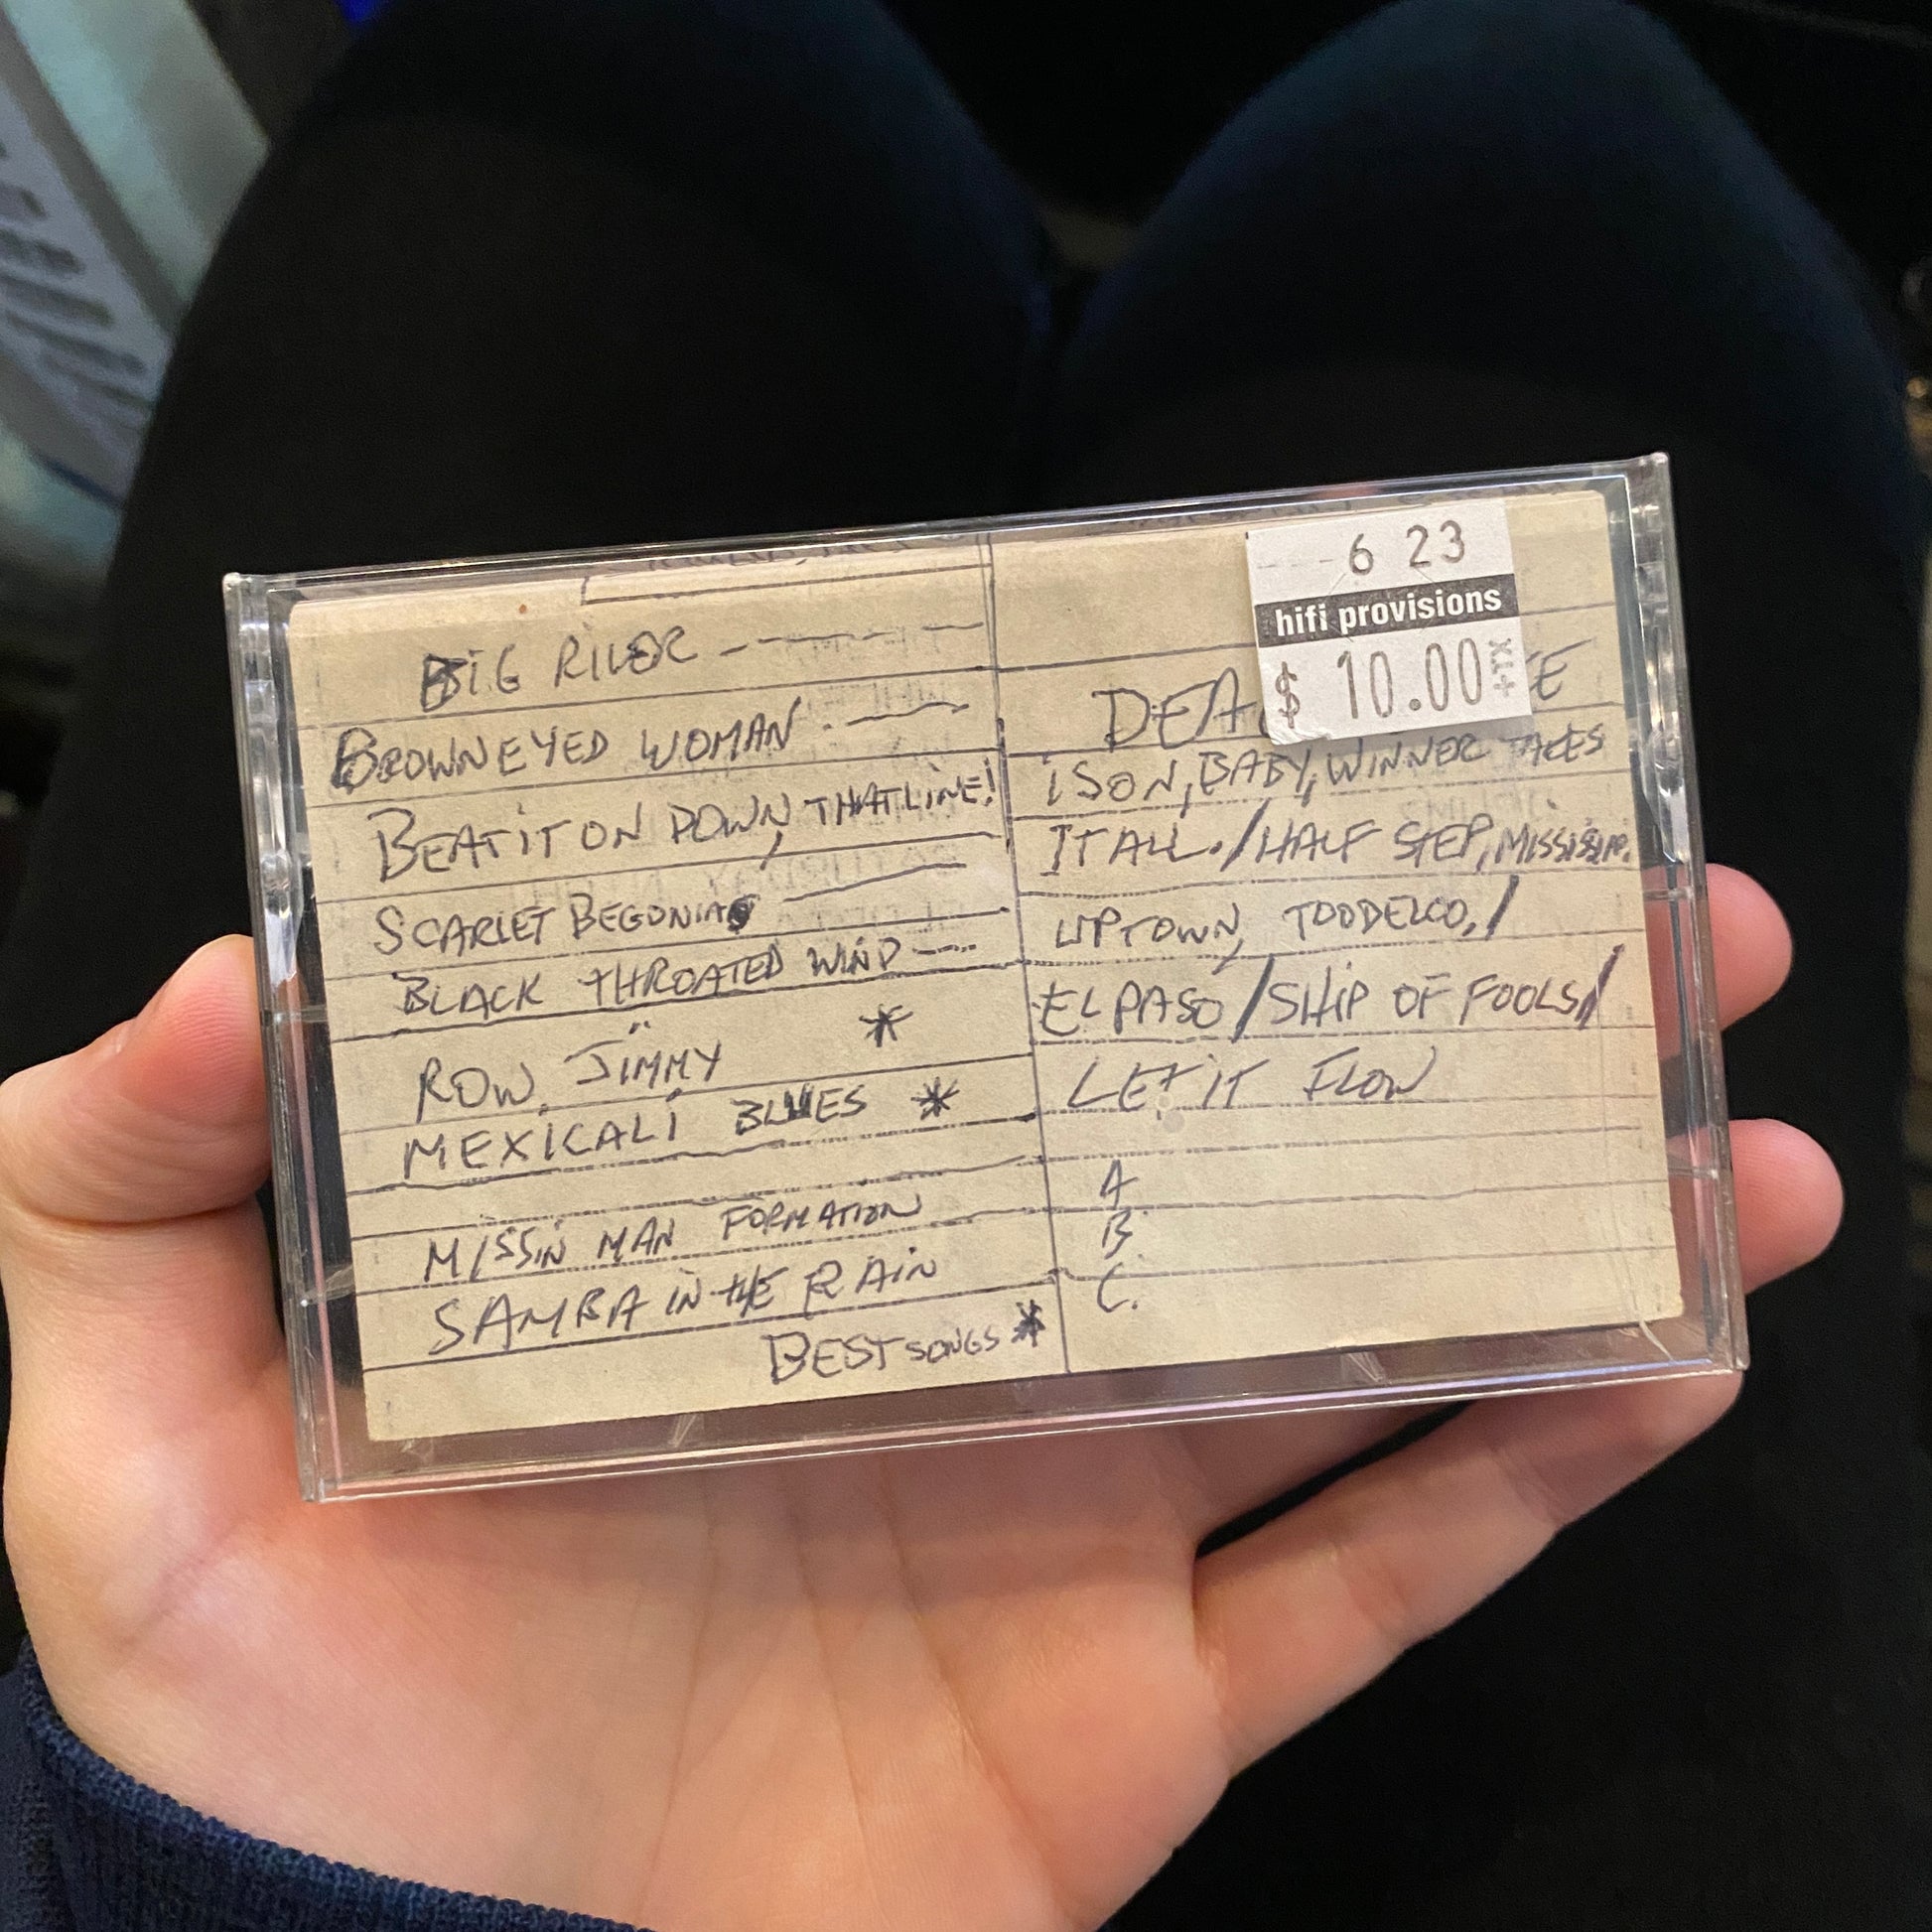 BIG RIVER
BROWN EYED WOMAN
BEAT IT ON DOWN, THAT LINE!
SCARLET BEGONIAS
BLACK THROATED WIND
ROW, JIMMY *
MEXICALI BLUES *
MISSIN MAN FORMATION
SAMBA IN THE RAIN
BEST SONGS *
6 23
hifi provisions
$ 10.00
+TX
DEA
E
ISON, BABY, WINNER TAKES
IT ALL. / HALF STEP, MISSISSIPP.
UPTOWN, TOODELOO, /
EL PASO / SHIP OF FOOLS /
LET IT FLOW
A
B.
C.